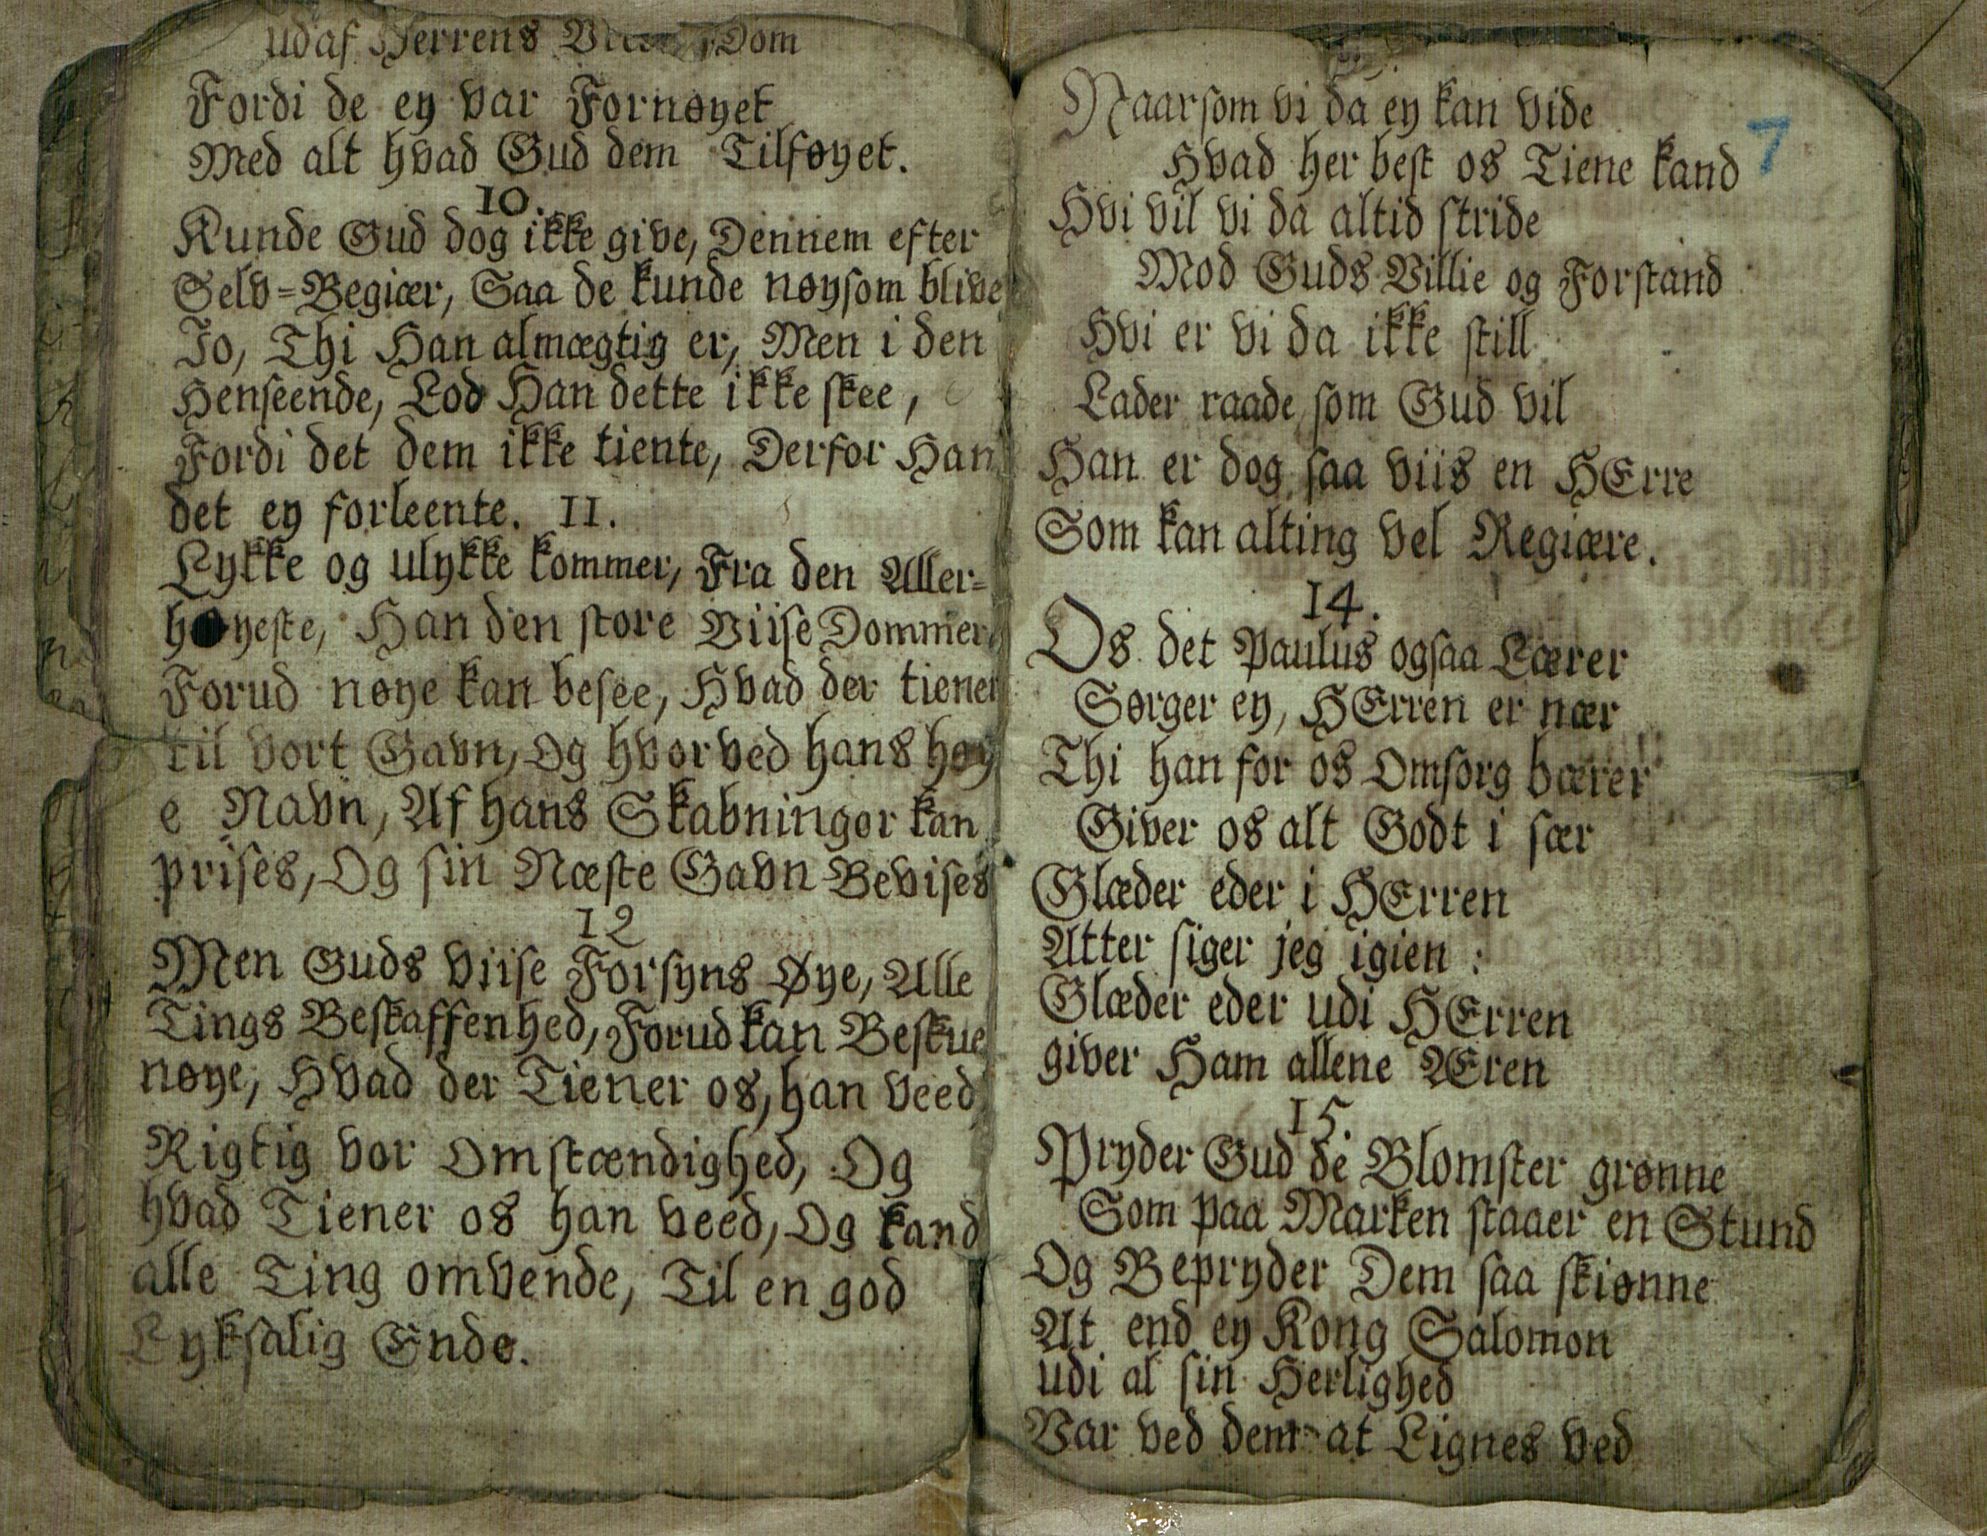 udaf Herrens Dom
Fordi de ey var Fornøyet
Med alt hvad Gud dem Tilføyet.
10.
Kunde Gud dog ikke give, Dennem efter
Selv=Begiær, Saa de kunde nøysom blive
Jo, Thi Han almægtig er, Men i den
Henseende, Lod Han dette ikke skee,
Fordi det dem ikke tiente, Derfor Han
det ey forleente. 11.
Lykke og ulykke kommer, Fra den Aller=
høyeste, Han den store Viise Dommer,
Forud nøye kan besee, Hvad der tiener
til vort Gavn, Og hvorved hans høy
e Navn, Af hans Skabninger kan
prises, Og sin Næste Gavn Bevises
12
Men Guds Viise Forsyns Øye, Alle
Tings Beskaffenhed, Forud kan Beskue
nøye, Hvad der Tiener os, han veed
Rigtig vor Omstændighed, Og
hvad Tiener os han veed, Og kand
alle Ting omvende, Til en god
Lyksalig Ende.
Naarsom vi da ey kan vide
7
Hvad her best os Tiene kand
Hvi vil vi da altid stride
Mod Guds Villie og Forstand
Hvi er vi da ikke still
Lader raade som Gud vil
Han er dog saa viis en HErre
Som kan alting vel Regiære.
14.
Os det Paulus ogsaa Lærer
Sørger ey, HErren er nær
Thi han for os Omsorg bærer
Giver os alt Godt i sær
Glæder eder i HErren
Atter siger jeg igien :
Glæder eder udi HErren
giver Ham allene Æren
15.
Pryder Gud de Blomster grønne
Som paa Marken staaer en Stund
Og Bepryder Dem saa skiønne
At end ey Kong Salomon
udi al sin Herlighed
Var ved dem at Lignes ved